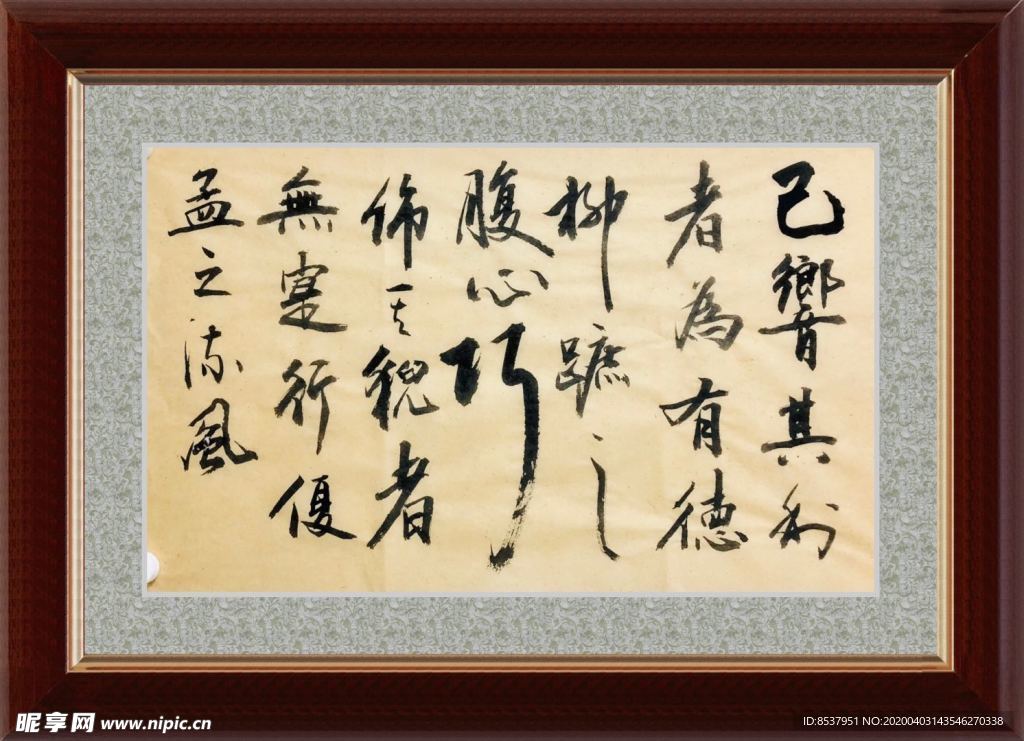 己響其利
者為有德
柳蹠之
腹心巧
佈其貌者
無寔行優
孟之流風
昵享网 www.nipic.cn
ID:8537951 NO:20200403143546270338